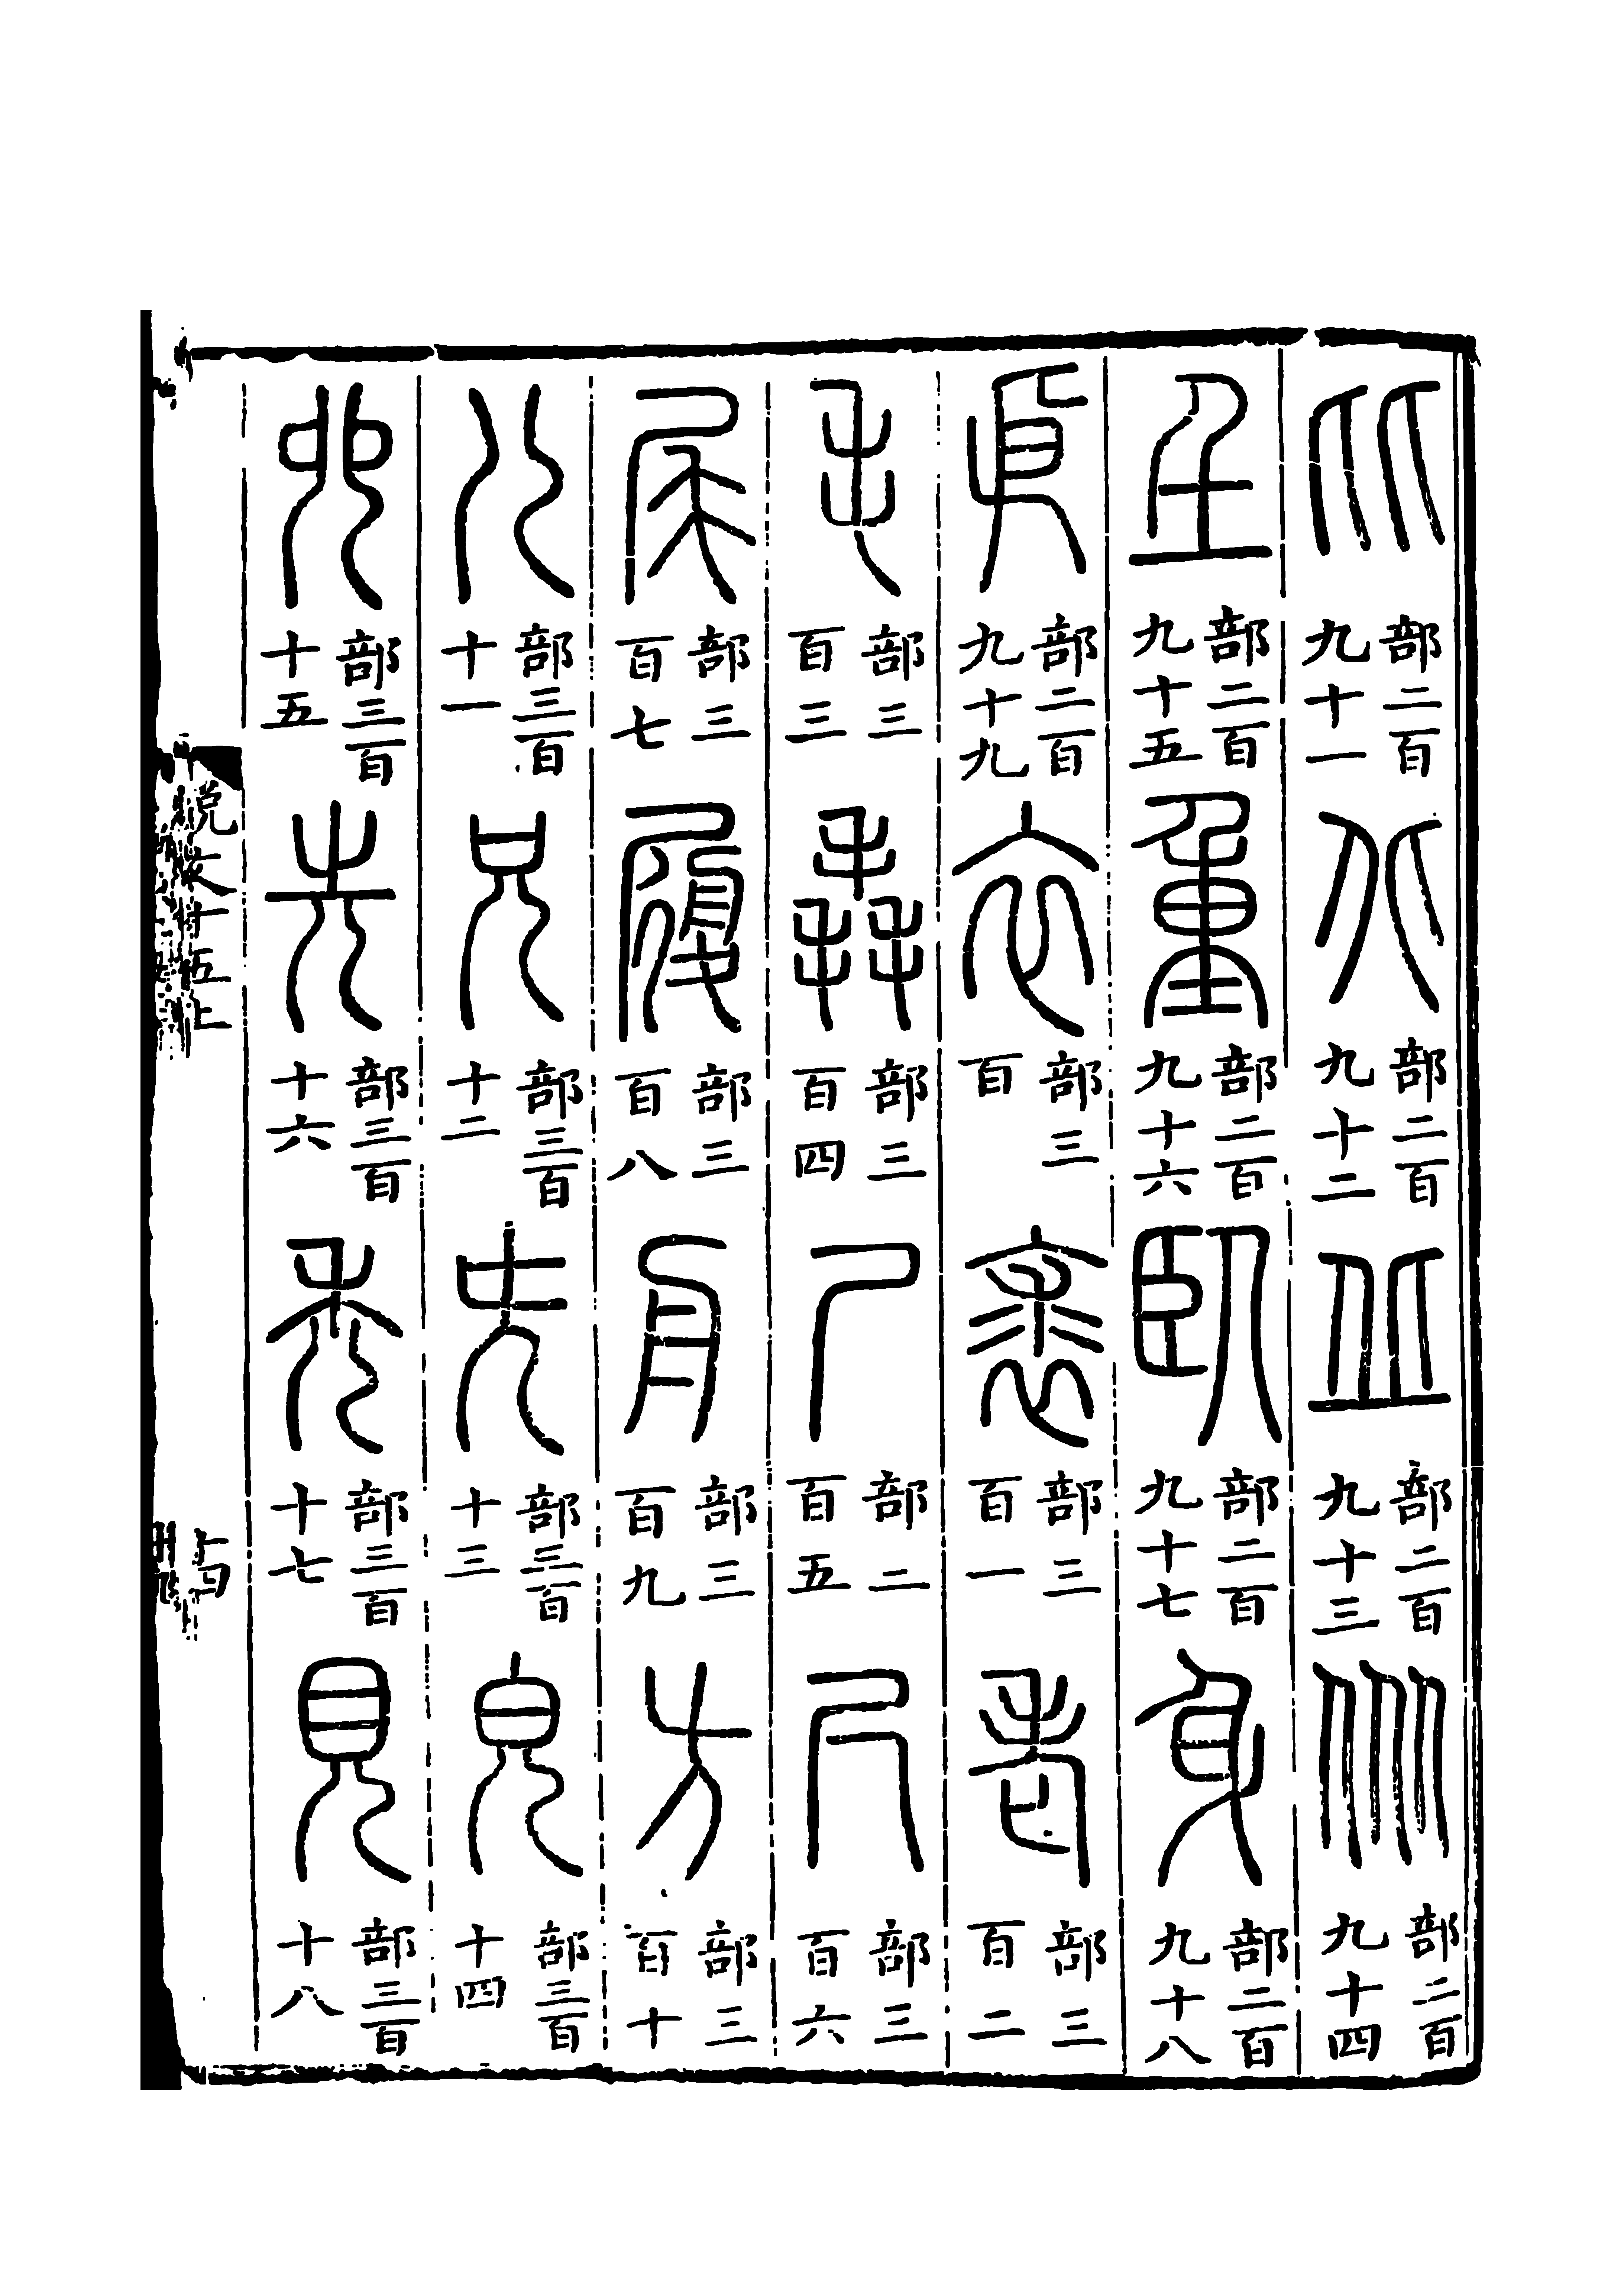 比部二百九十一 北部二百九十二 丘部二百九十三 㐺部二百九十四
𡈼部二百九十五 重部二百九十六 臥部二百九十七 身部二百九十八
㐆部二百九十九 衣部三百 裘部三百一 老部三百二
毛部三百三 毳部三百四 尸部二百五 尺部三百六
尾部三百七 履部三百八 舟部三百九 方部三百十
儿部三百十一 兄部三百十二 兂部三百十三 皃部三百十四
𠑹部三百十五 先部三百十六 禿部三百十七 見部三百十八
説文十五上